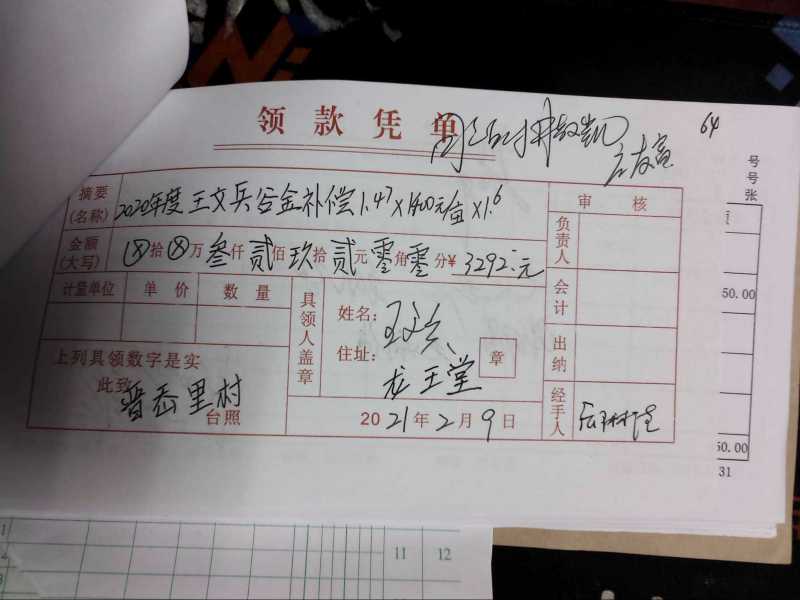 领款凭单
64
号
号
张
摘要(名称) 2020年度王文兵谷金补偿1.47×1400元/亩×1.6
审核
金额(大写) ⊗拾⊗万叁仟贰佰玖拾贰元零角零分¥3292.元
负责人
计量单位 单价 数量
具领人盖章
姓名:
住址: 龙王堂
章
会计
50.00
出纳
上列具领数字是实
此致
普岳里村
台照
2021年2月9日
经手人
50.00
31
11 12